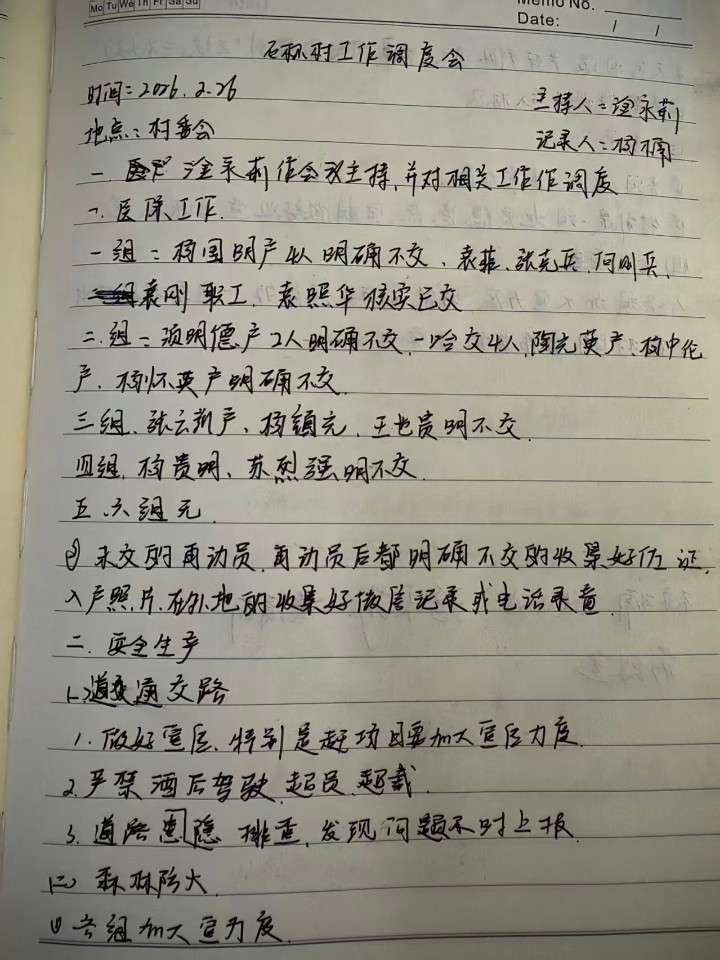 Mo Tu We Th Fr Sa Su
Memo No.
Date: / /
石林村工作调度会
时间：2026.2.26
主持人：淦永莉
地点：村委会
记录人：杨楠
一 淦永莉作会议主持，并对相关工作作调度
一、医保工作.
一组：杨国明户4人明确不交、袁菲、张克兵、何刚兵、
袁刚 职工，袁照华核实已交
二组：项明德户2人明确不交，一哈交4人，陶元英户、杨中伦
户、杨怀英户明确不交.
三组、张云新户、杨颜元、王世贵明不交.
四组、杨贵明、苏烈强明不交.
五、六组无.
未交的再动员，再动员后都明确不交的收集好佐证，
入户照片，在外地的收集好微信记录或电话录音.
二、安全生产
(一)道交通交路
1、做好宣传、特别是赶场日要加大宣传力度.
2、严禁酒后驾驶、超员、超载.
3、道路患隐排查，发现问题及时上报.
(二) 森林防火
(1)各组加大宣力度.